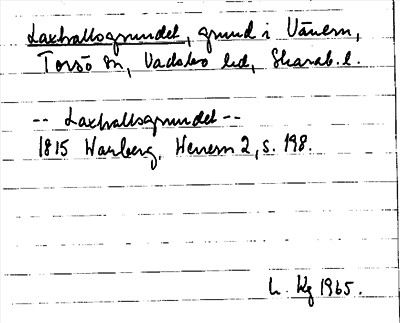 Laxhallsgrundet, grund i Vänern,
Torsö sn, Vadsbo hd, Skarab. l.
-- Laxhallsgrundet --
1815 Warberg, Wenern 2, s. 198.
L. Kg 1965.